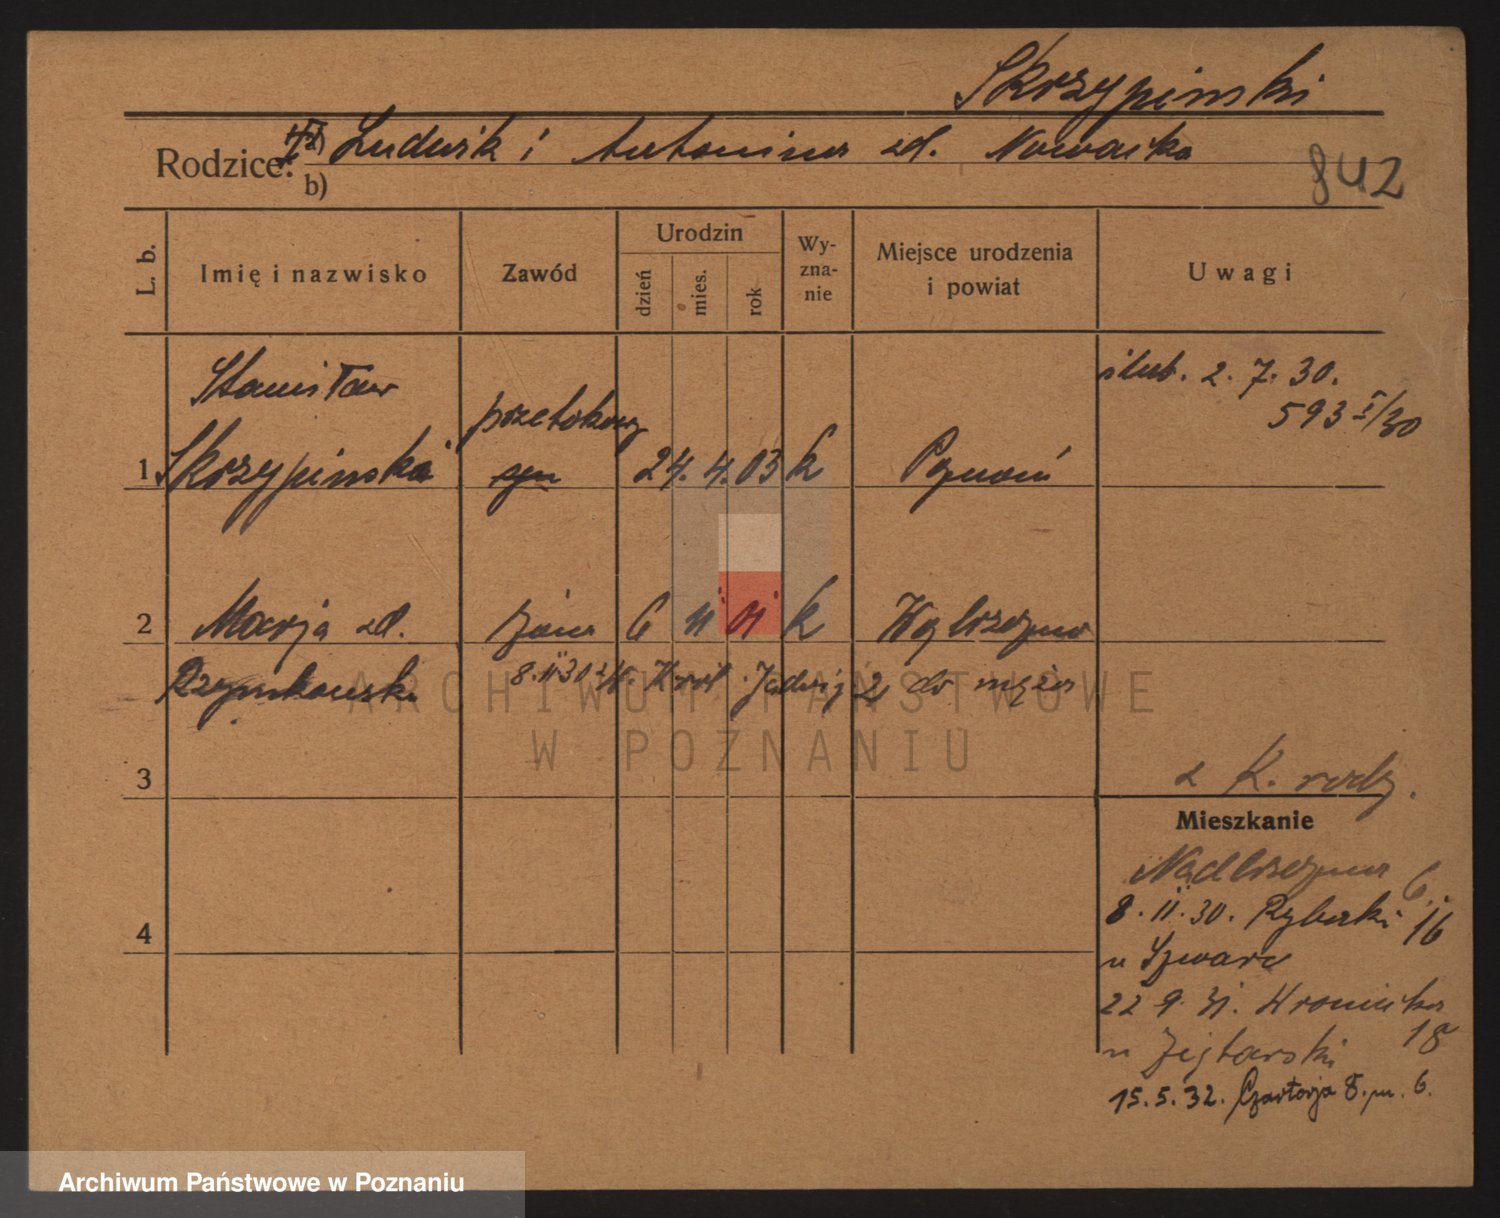 Skrzypinski
Rodzice: a) Ludwik i Antonina zd. Nowacka
b)
842
L. b. Imię i nazwisko Zawód Urodzin dzień mies. rok Wy-zna-nie Miejsce urodzenia i powiat Uwagi
Stanisław
ślub. 2. 7. 30.
przetokowy
593 I/30
1 Skrzypinski 24. 4. 03 k Poznań
2 Marja zd. żona 6 11 01 k
8.11.30 Jadwigi 2 do męża
ARCHIWUM PAŃSTWOWE
W POZNANIU
3
z K. rodz.
Mieszkanie
6.
4
8. 11. 30. Rybaki 16
u Szwarc
22 9. 31. Wroniecka
18
u
15. 5. 32. Czartorja 8. m. 6.
Archiwum Państwowe w Poznaniu